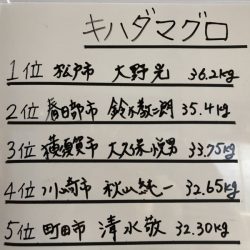 キハダマグロ
1位 松戸市 大野光 36.2kg
2位 春日部市 鈴木敬三朗 35.4kg
3位 横須賀市 大久保悦男 33.75kg
4位 川崎市 秋山純一 32.65kg
5位 町田市 清水敬 32.30kg